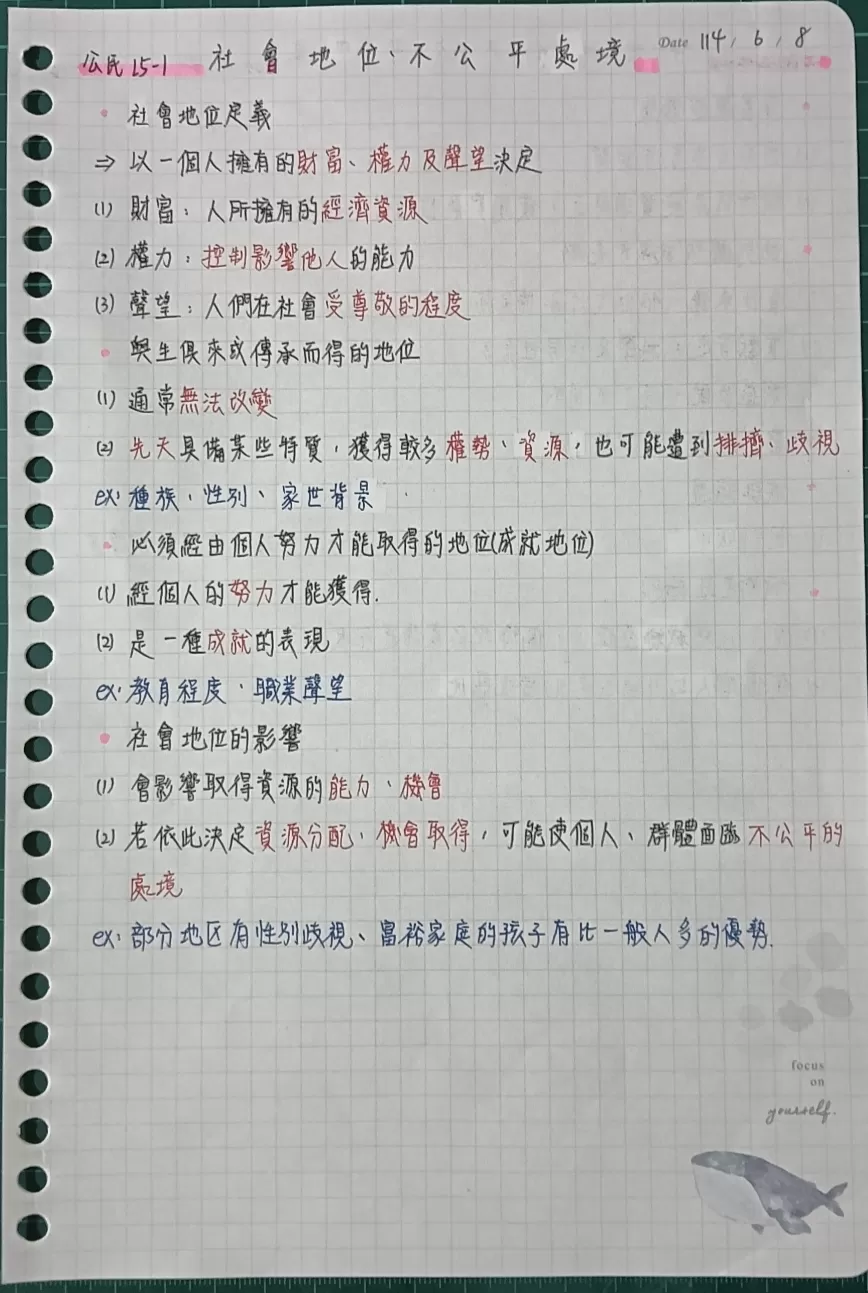 公民15-1 社會地位、不公平處境 Date 114/6/8
• 社會地位定義
⇒ 以一個人擁有的財富、權力及聲望決定
(1) 財富：人所擁有的經濟資源
(2) 權力：控制影響他人的能力
(3) 聲望：人們在社會受尊敬的程度
• 與生俱來或傳承而得的地位
(1) 通常無法改變
(2) 先天具備某些特質，獲得較多權勢、資源，也可能遭到排擠、歧視
ex: 種族、性別、家世背景
• 必須經由個人努力才能取得的地位(成就地位)
(1) 經個人的努力才能獲得.
(2) 是一種成就的表現
ex: 教育程度、職業聲望
• 社會地位的影響
(1) 會影響取得資源的能力、機會
(2) 若依此決定資源分配、機會取得，可能使個人、群體面臨不公平的
處境
ex: 部分地区有性別歧視、富裕家庭的孩子有比一般人多的優勢.
focus
on
yourself.